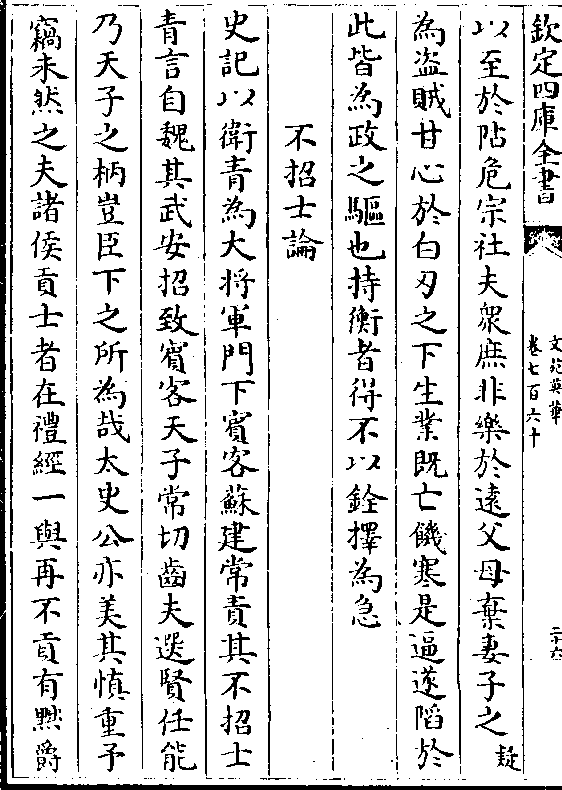 欽定四庫全書
文苑英華
卷七百六十
二十六
以至於阽危宗社夫眾庶非樂於遠父母棄妻子之疑
為盜賊甘心於白刃之下生業既亡饑寒是逼遂陷於
此皆為政之驅也持衡者得不以銓擇為急
不招士論
史記以衛青為大將軍門下賓客蘇建常責其不招士
青言自魏其武安招致賓客天子常切齒夫選賢任能
乃天子之柄豈臣下之所為哉太史公亦美其慎重予
竊未然之夫諸侯貢士者在禮經一與再不貢有黜爵